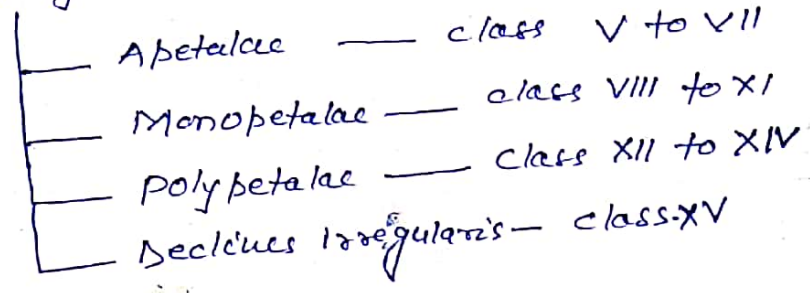 Apetalae — class V to VII
Monopetalae — class VIII to XI
Polypetalae — Class XII to XIV
Declines Irregularis — class-XV